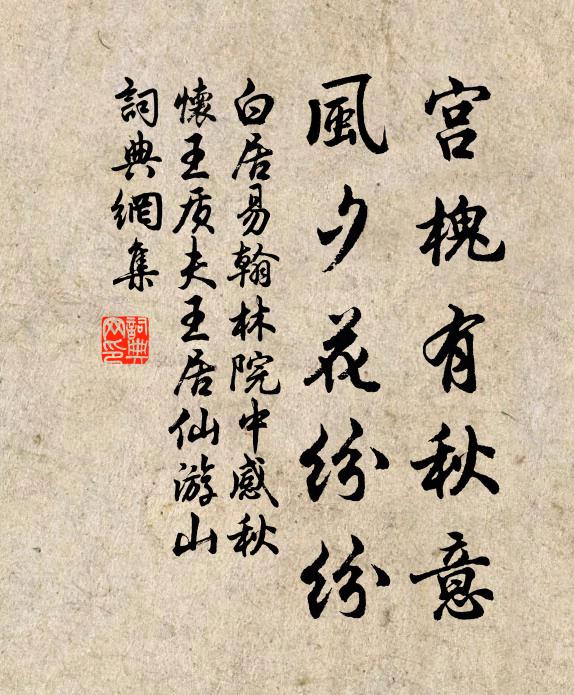 宫槐有秋意
風夕花紛紛
白居易翰林院中感秋
懷王质夫王居仙游山
詞典網集
詞典
网印